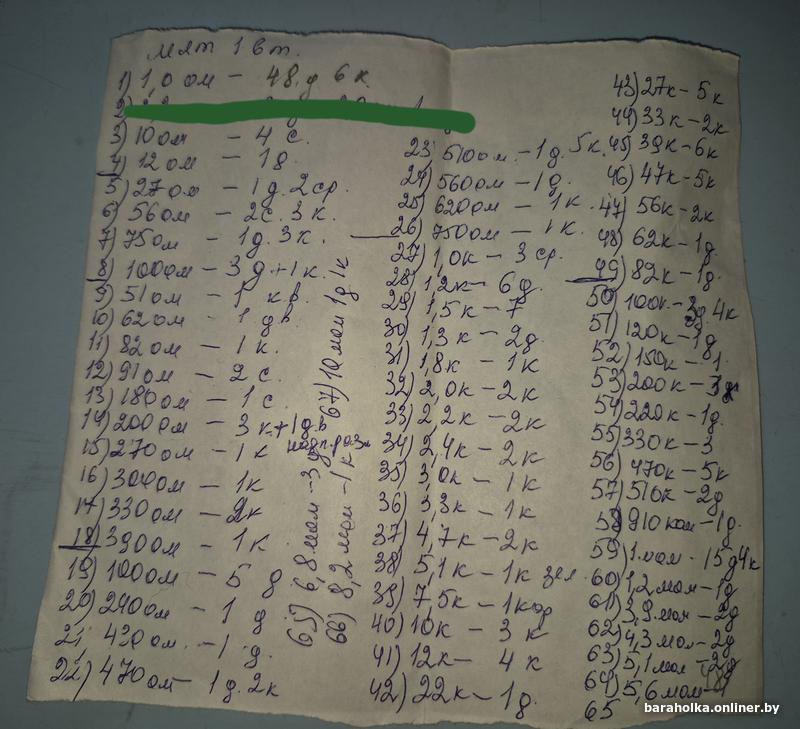 мят 1 вт.
1) 1,0 ом - 48 д 6 к
2)
3) 10 ом - 4 с.
4) 12 ом - 1 д.
5) 27 ом - 1 д. 2 ср.
6) 56 ом - 2 с. 3 к.
7) 75 ом - 1 д. 3 к.
8) 100 ом - 3 д. + 1 к.
9) 51 ом - 1 кв.
10) 62 ом - 1 дв.
11) 82 ом - 1 к.
12) 91 ом - 2 с.
13) 180 ом - 1 с.
14) 200 ом - 3 к + 1 д.в
15) 270 ом - 1 к
16) 300 ом - 1 к
17) 330 ом - 2 к
18) 390 ом - 1 к
19) 100 ом - 5 д
20) 240 ом - 1 д
21, 420 ом. - 1 д.
22) 470 ом - 1 д. 2 к
65) 6,8 мом - 3 д
66) 8,2 мом - 1 к
67) 10 мом 1 д 1 к
23) 510 ом. - 1 д. 5 к.
24) 560 ом - 1 д.
25) 620 ом - 1 к.
26) 750 ом - 1 к.
27) 1,0 к - 3 ср.
28) 1,2 к - 6 д.
29) 1,5 к - 7
30) 1,3 к - 2 д.
31) 1,8 к - 1 к
32) 2,0 к - 2 к
33) 2,2 к - 2 к
34) 2,4 к - 2 к
35) 3,0 к - 1 к
36) 3,3 к - 1 к
37) 4,7 к - 2 к
38) 5,1 к - 1 к зел
39) 7,5 к - 1 кор
40) 10 к - 3 к
41) 12 к - 4 к
42) 22 к - 1 д.
43) 27 к - 5 к
44) 33 к - 2 к
45) 39 к - 6 к
46) 47 к - 5 к
47) 56 к - 2 к
48) 62 к - 1 д.
49) 82 к - 1 д.
50) 100 к - 3 д. 4 к
51) 120 к - 1 д
52) 150 к - 1
53) 200 к - 3 д
54) 220 к - 1 д.
55) 330 к - 3
56) 470 к - 5 к
57) 510 к - 2 д
58) 910 ком - 1 д.
59) 1 мом - 15 д 4 к
60) 1,2 мом - 1 д
61) 3,9 мом - 2 д
62) 4,3 мом - 2 д
63) 5,1 мом - 2 д
64) 5,6 мом
65
baraholka.onliner.by